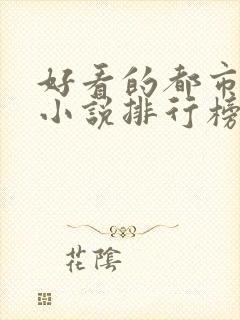 好看的都市
小说排行榜
花陰